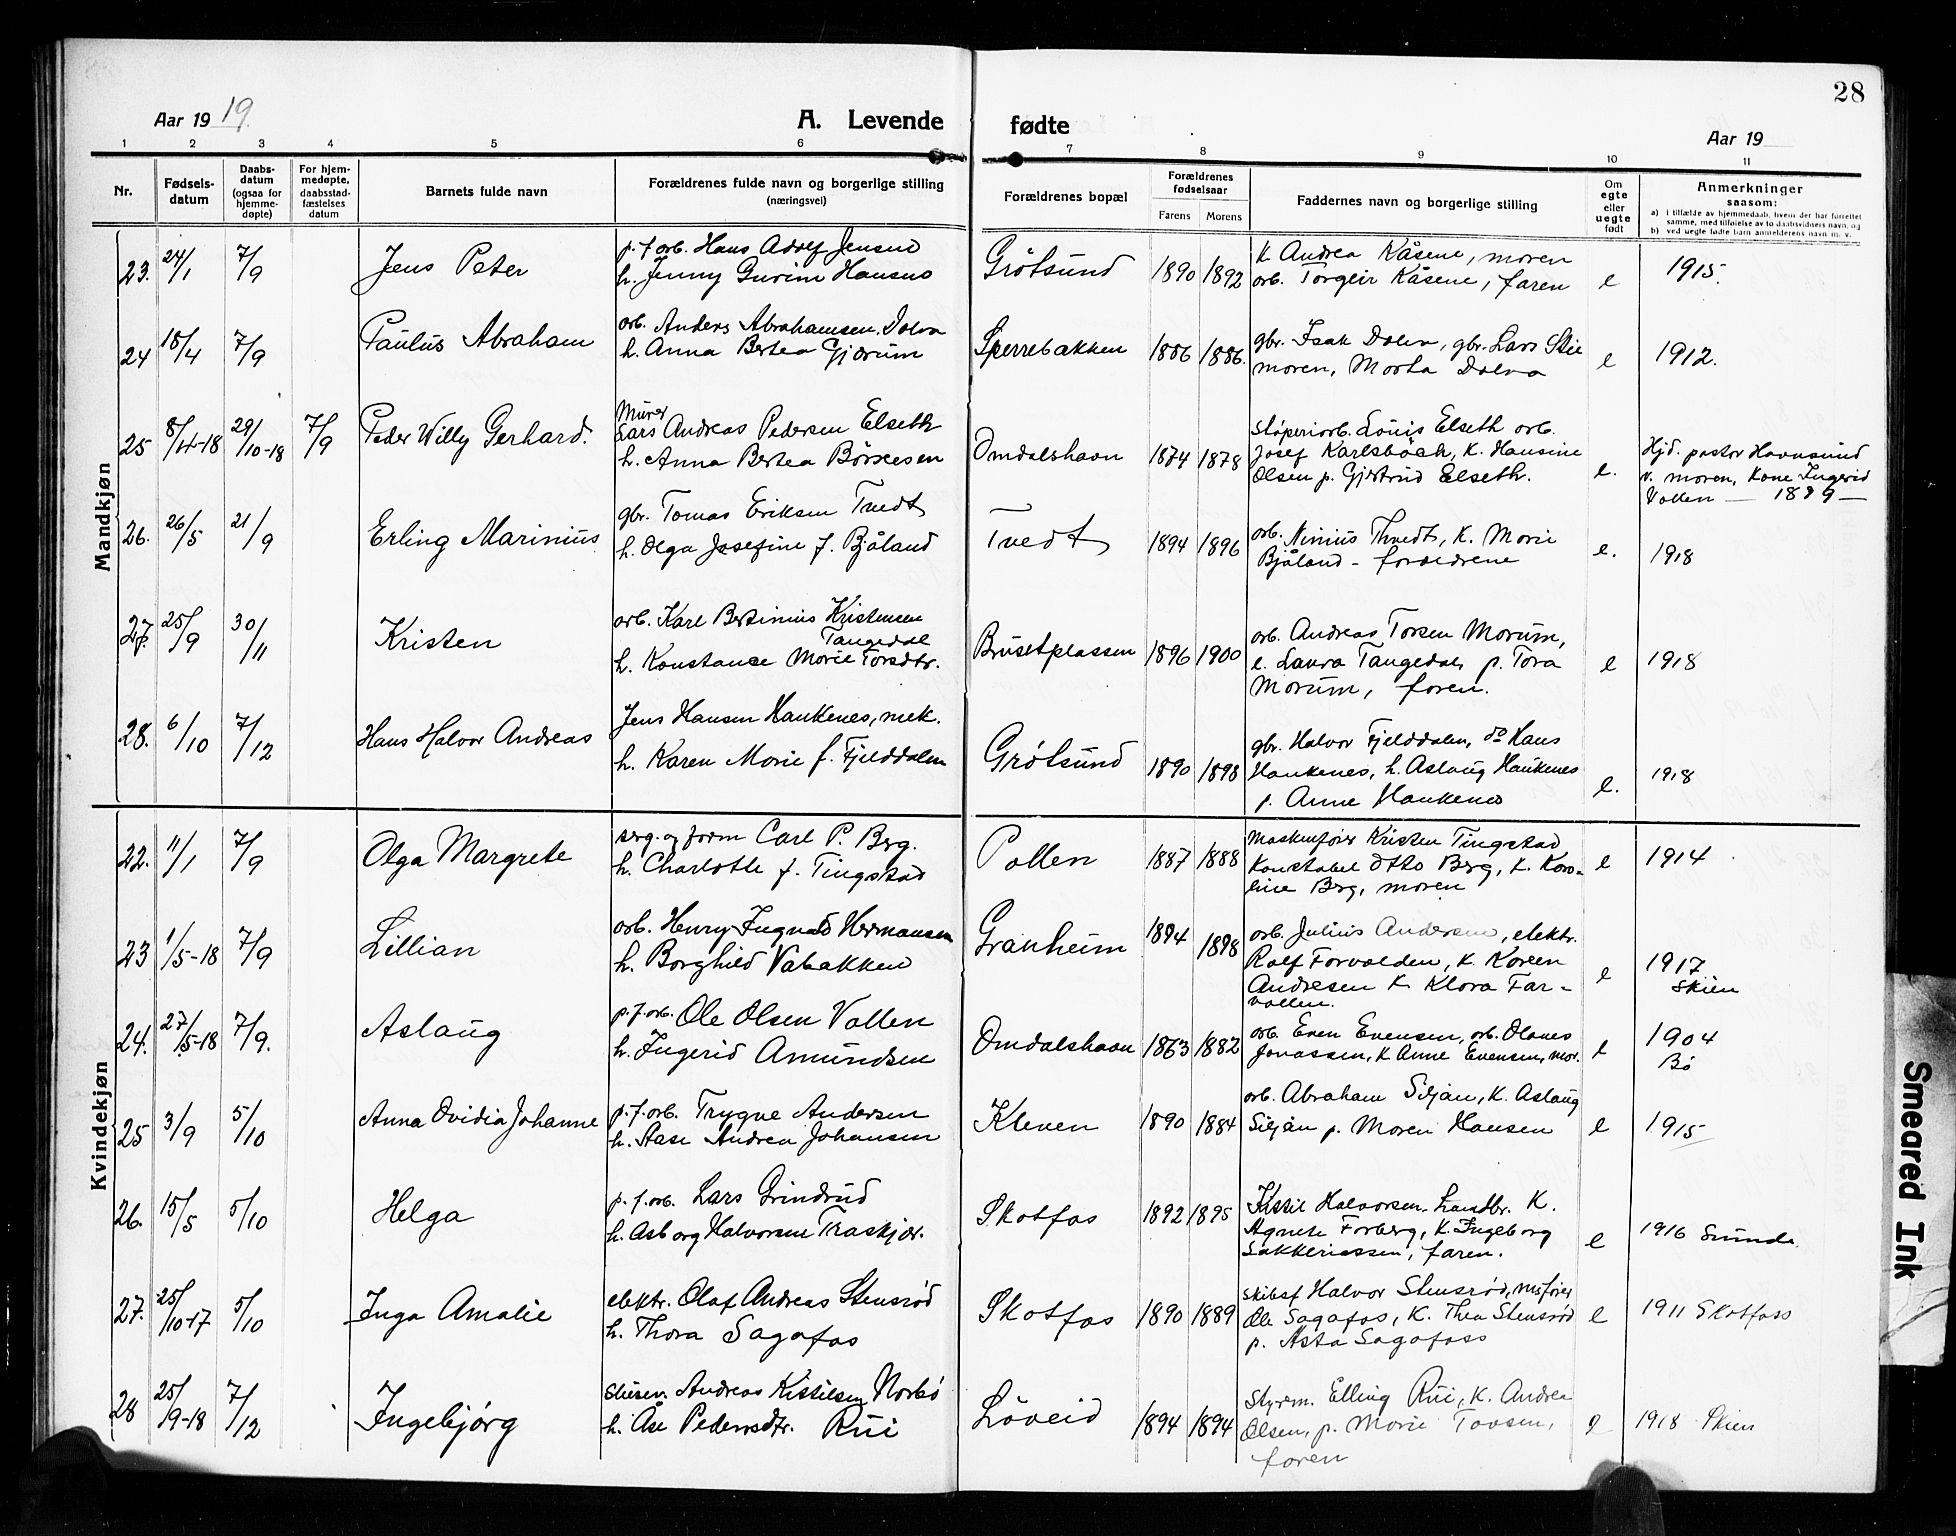 28
Aar 1919.
A. Levende fødte
Aar 19
1 2 3 4 5 6 7 8 9 10 11
Nr.
Fødsels-
datum
Daabs-
datum
(ogsaa for
hjemme-
døpte)
For hjem-
medøpte,
daabsstad-
fæstelses
datum
Barnets fulde navn
Forældrenes fulde navn og borgerlige stilling
(næringsvei)
Forældrenes bopæl
Forældrenes
fødselsaar
Farens Morens
Faddernes navn og borgerlige stilling
Om
egte
eller
uegte
født
Anmerkninger
saasom:
a) i tilfælde av hjemmedaab, hvem der har forrettet
samme, med tilføielse av to daabsvidners navn, og
b) ved uegte fødte barn anmelderens navn m. v.
Mandkjøn
23. 24/1 7/9 Jens Peter
p. f. orb. Hans Adolf Jensen
h. Jenny Gurine Hansen
Grötsund 1890 1892
K Andrea Kåsene, moren
orb. Torgeir Kåsene, faren
e 1915.
24 18/4 7/9 Paulus Abraham
orb. Anders Abrahamsen Dolva
h. Anna Bertea Gjærum
Sperrebakken 1886 1886.
gbr. Isak Dolva, gbr. Lars Stie
moren, Marta Dolva
e 1912.
25 8/4-18 29/10-18 7/9 Peder Willy Gerhard.
Murer
Lars Andreas Pedersen Elseth
h. Anna Bertea Börresen
Omdalshavn 1874 1878
Støperiorb. Louis Elseth orb.
Josef Karlsbäck, K. Hansine
Olsen p. Gjertrud Elseth.
e.
Hjd. pastor Havnsund
v. moren, Kone Ingerid
Vollen — 1899 —
26. 26/5 21/9 Erling Marinius
gbr. Tomas Eriksen Tvedt
h. Olga Josefine f. Bjåland
Tvedt 1894 1896
orb. Ninius Thvedt, K. Marie
Bjåland - forældrene
e. 1918
27. 25/9 30/11 Kristen
orb. Karl Bertinius Kristensen
Tangedal
h. Konstanse Marie Torsdtr.
Brusetplassen 1896 1900
orb. Andreas Torsen Morum,
e. Laura Tangedal, p. Tora
Morum, faren.
e 1918
28. 6/10 7/12 Hans Halvor Andreas
Jens Hansen Haukenes, mek.
h. Karen Marie f. Fjelddalen
Grötsund 1890 1898
gbr. Halvor Fjelddalen, do Hans
Haukenes, h. Aslaug Haukenes
p. Anne Haukenes
e. 1918
Kvindekjøn
22. 11/1 7/9 Olga Margrete
serg. og form Carl P. Berg.
h. Charlotte f. Tingstad
Pollen 1887 1888
Maskinfører Kristen Tingstad
Konstabel Otto Berg, K. Karo-
line Berg, moren
e 1914
23 1/5-18 7/9 Lillian
orb. Henry Ingvald Hermansen
h. Borghild Vabakken
Granheim 1894 1898
orb. Julius Andersen, elektr.
Rolf Farvolden, K. Kareen
Andresen K Klara Far-
vollen.
e 1917
Skien
24. 27/5-18 7/9. Aslaug
p. f. orb. Ole Olsen Vollen
h. Ingerid Amundsen
Omdalshavn 1863 1882
orb. Even Evensen, orb. Olaves
Jonassen, K Anne Evensen, mor.
e 1904
Bö
25 3/9 5/10 Anna Ovidia Johanne
p. f. orb. Trygve Andersen
h. Aase Andrea Johansen
Kleven 1890 1884
orb. Abraham Siljan, K. Aslaug
Siljan p. Maren Hansen
e 1915
26. 15/5 5/10 Helga
p. f. orb. Lars Grindrud
h. Asborg Halvorsen Traskjær.
Skotfos 1892 1895
Kittil Halvorsen, Landbr. K.
Agnete Forberg, K. Ingeborg
Sakkeriassen, faren.
e 1916 Sunde.
27. 25/10-17 5/10 Inga Amalie
elektr. Olaf Andreas Stensrød
h. Thora Sagafos
Skotfos 1890 1889
skibsf Halvor Stensrød, msfører
Ole Sagafos, K. Thea Stensrød
p. Asta Sagafoss
e 1911 Skotfoss
28 25/9-18 7/12 Ingebjørg
Andreas Kittilsen Norbö
h. Åse Pedersdtr. Rui
Löveid 1894 1894
Styrm. Elling Rui, K. Andrea
Olsen, p. Marie Tovsen,
faren
e 1918 Skien
Smeared Ink